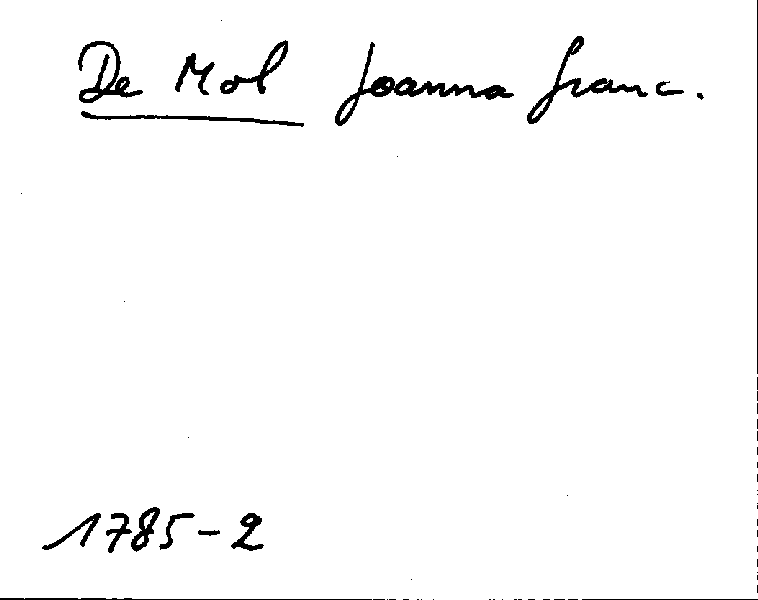 De Mol Joanna Franc.
1785-2